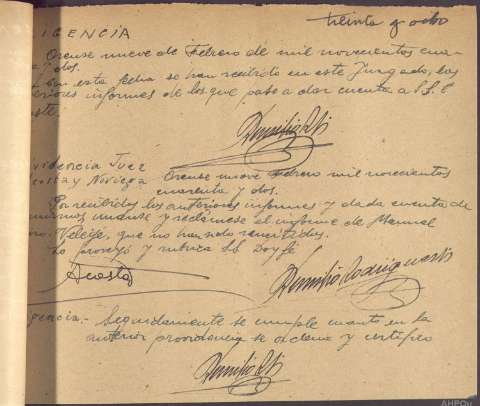 treinta y ocho
IGENCIA
Orense nueve de Febrero de mil novecientos cua-
y dos.
con esta fecha se han recibido en este Juzgado, los
eriores informes de los que paso a dar cuenta a S.S.
videncia Juez
costa y Noviega
Orense nueve Febrero mil novecientos
cuarenta y dos.
Por recibidos los anteriores informes y dada cuenta de
unanse y reclámese el informe de Manuel
que no han sido remitidos.
Lo proveyó y rubrica SS. Doy fé
Acosta
Rodriguez
igencia.- Seguidamente se cumple cuanto en la
anterior providencia se ordena y certifico
AHPOu